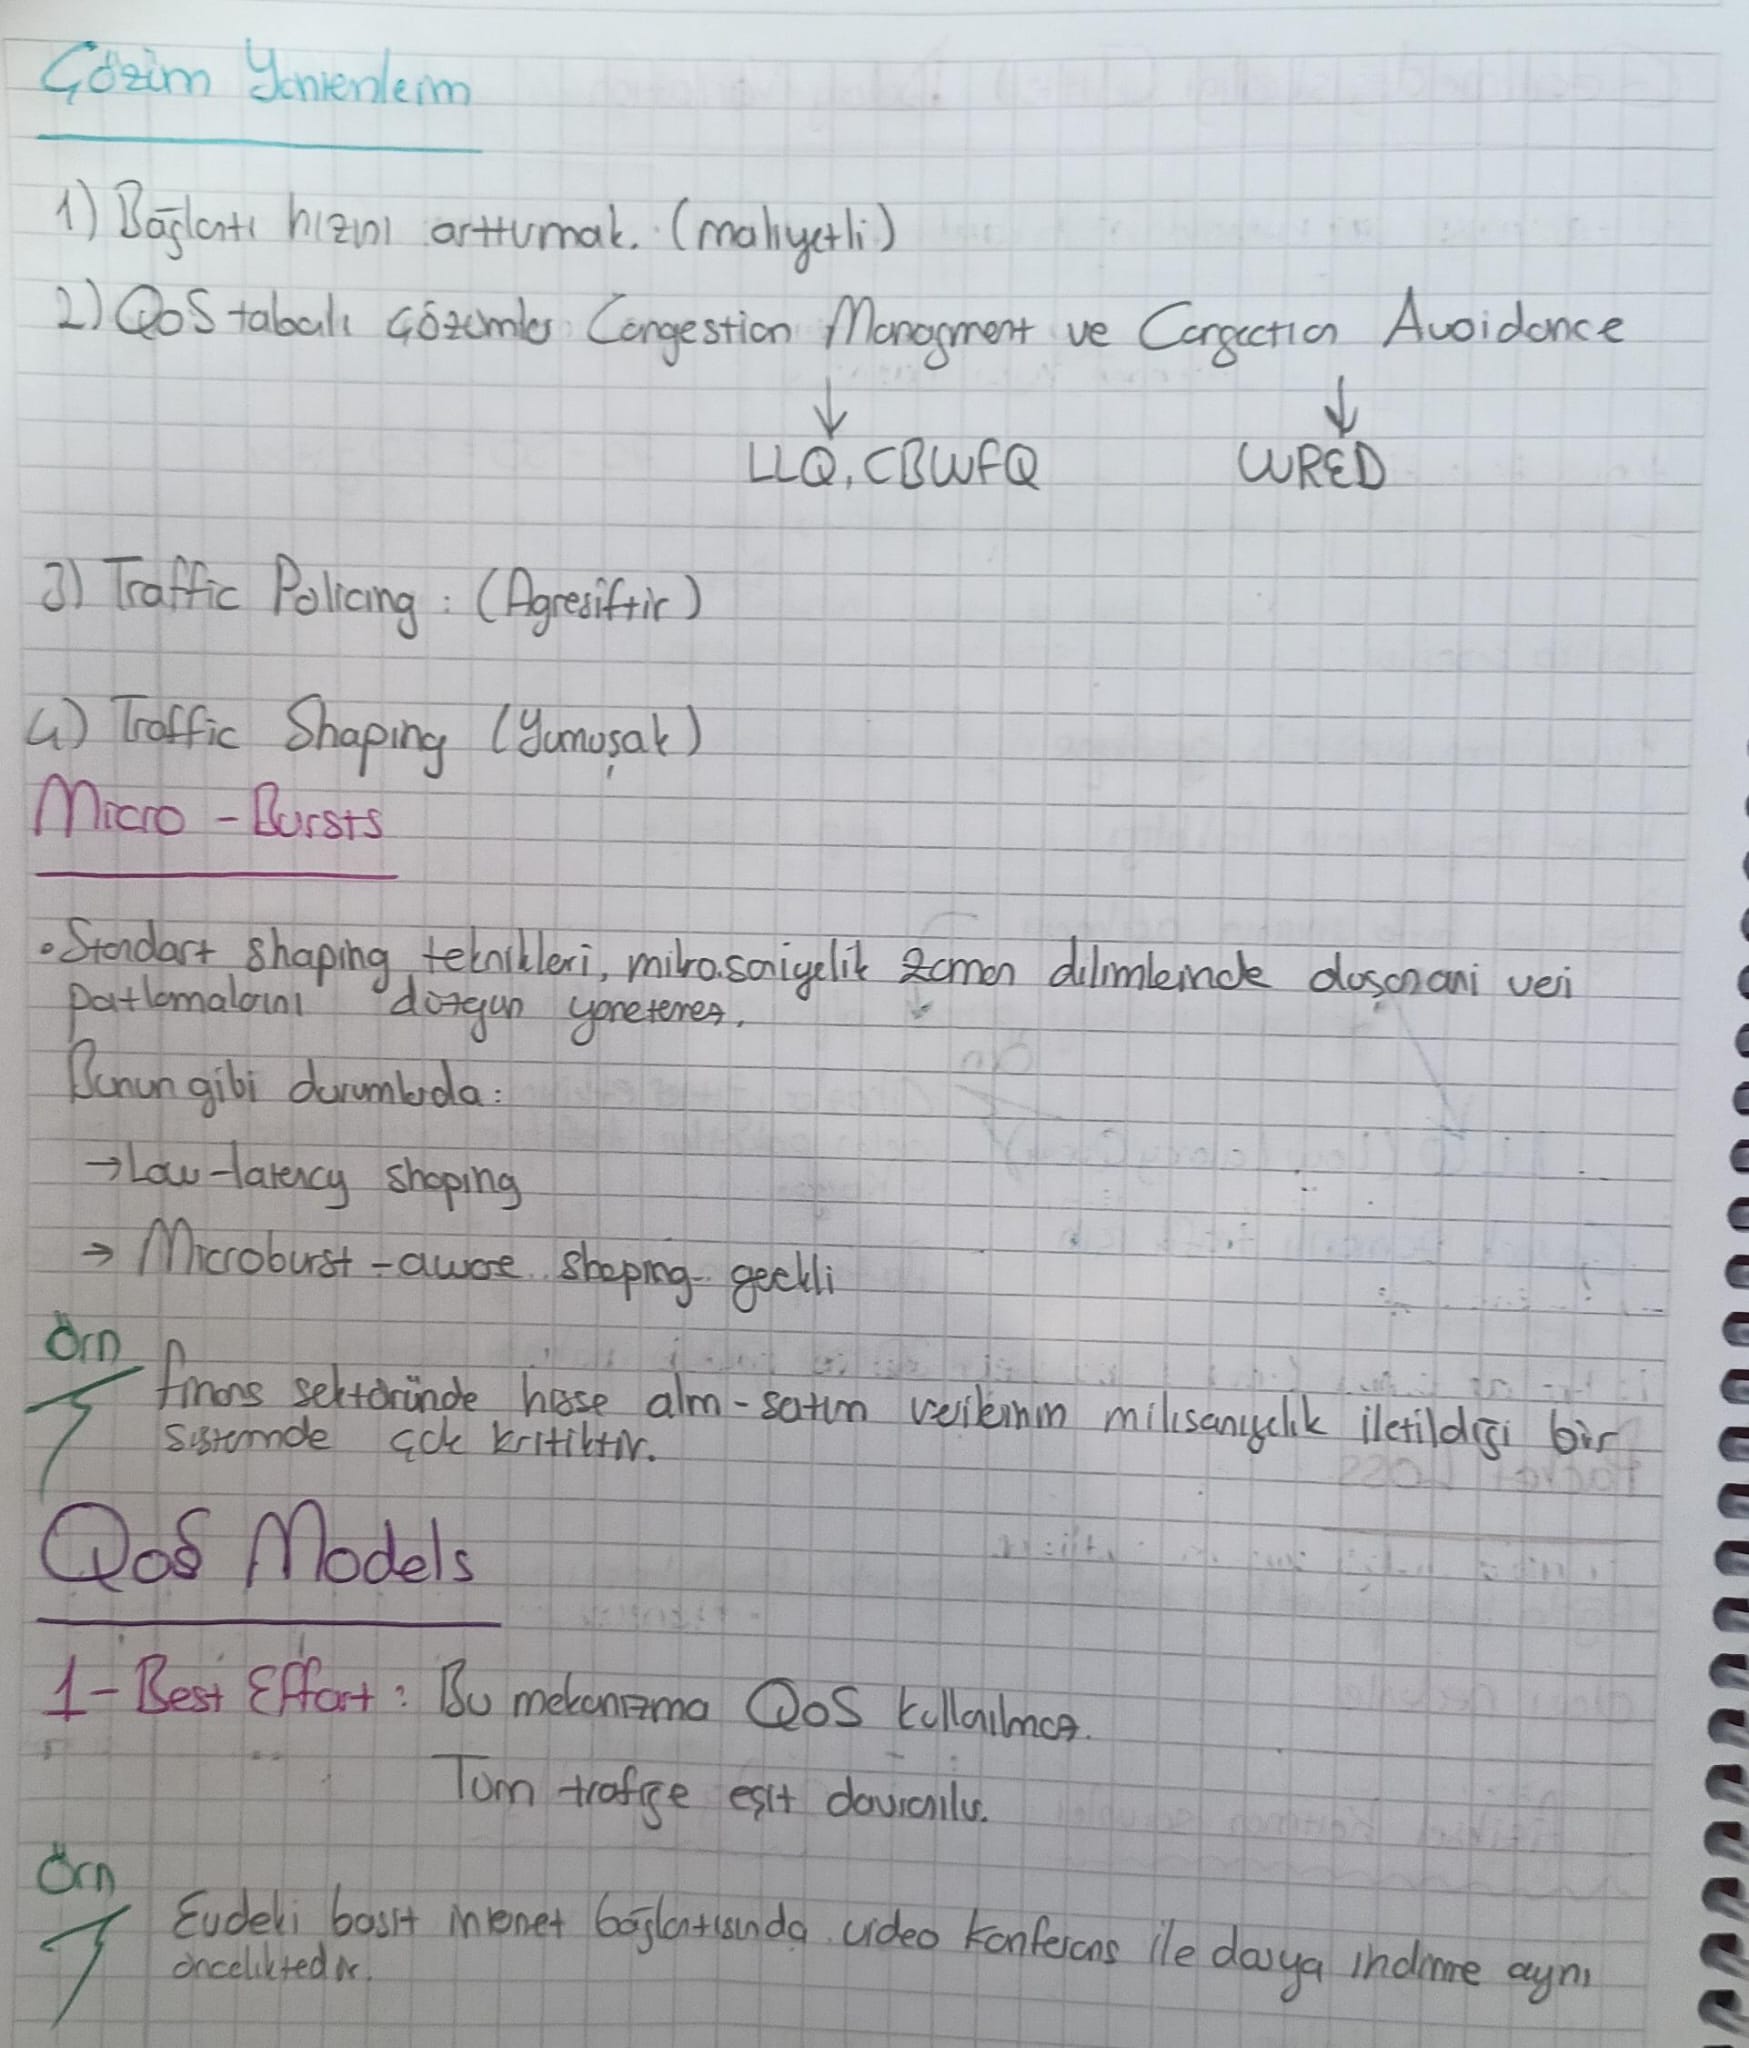 Çözüm Yöntemleri
1) Bağlantı hızını arttırmak. (maliyetli)
2) QoS tabanlı çözümler Congestion Managment ve Congestion Avoidance
↓ ↓
LLQ, CBWFQ WRED
3) Traffic Policing : (Agresiftir)
4) Traffic Shaping (Yumuşak)
Micro - Bursts
• Standart shaping teknikleri, mikrosaniyelik zaman dilimlerinde oluşan ani veri
patlamalarını düzgün yönetemez.
Bunun gibi durumlarda:
→ Low-latency shaping
→ Microburst - aware shaping gerekli
Örn
finans sektöründe hisse alım-satım verilerinin milisaniyelik iletildiği bir
sistemde çok kritiktir.
QoS Models
1- Best Effort : Bu mekanizma QoS kullanılmaz.
Tüm trafiğe eşit davranılır.
Örn
Evdeki basit internet bağlantısında video konferans ile dosya indirme aynı
önceliktedir.